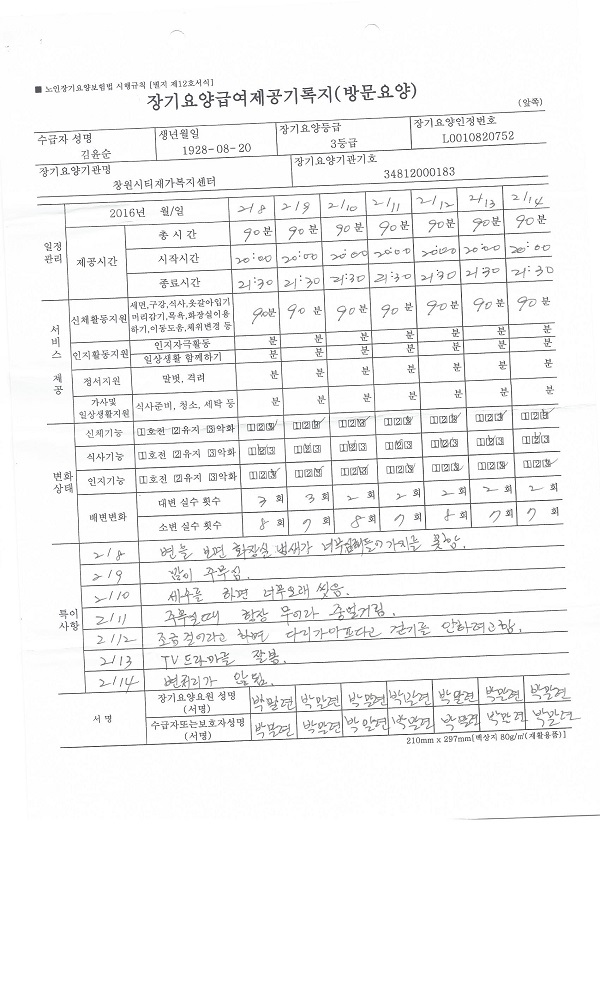 ■ 노인장기요양보험법 시행규칙 [별지 제12호서식]
장기요양급여제공기록지(방문요양)
(앞쪽)
수급자 성명 생년월일 장기요양등급 장기요양인정번호
김윤순 1928-08-20 3등급 L0010820752
장기요양기관명 장기요양기관기호
창원시티재가복지센터 34812000183
일정관리 2016년 월/일 2/8 2/9 2/10 2/11 2/12 2/13 2/14
제공시간 총 시 간 90분 90분 90분 90분 90분 90분 90분
시작시간 20:00 20:00 20:00 20:00 20:00 20:00 20:00
종료시간 21:30 21:30 21:30 21:30 21:30 21:30 21:30
서비스 제공
신체활동지원 세면,구강,식사,옷갈아입기 머리감기,목욕,화장실이용 하기,이동도움,체위변경 등 90분 90분 90분 90분 90분 90분 90분
인지활동지원 인지자극활동 분 분 분 분 분 분 분
일상생활 함께하기 분 분 분 분 분 분 분
정서지원 말벗, 격려 분 분 분 분 분 분 분
가사및 일상생활지원 식사준비, 청소, 세탁 등 분 분 분 분 분 분 분
변화상태
신체기능 1호전 2유지 3악화 123 123 123 123 123 123 123
식사기능 1호전 2유지 3악화 123 123 123 123 123 123 123
인지기능 1호전 2유지 3악화 123 123 123 123 123 123 123
배변변화 대변 실수 횟수 3 회 3 회 2 회 2 회 2 회 2 회 2 회
소변 실수 횟수 8 회 7 회 8 회 7 회 8 회 7 회 7 회
특이사항
2/8 변을 보면 화장실 냄새가 너무심해들어가지를 못함.
2/9 많이 주무심.
2/10 세수를 하면 너무오래 씻음.
2/11 주무실때 항상 무어라 중얼거림.
2/12 조금 걸어라고 하면 다리가아프다고 걷기를 안하려고함.
2/13 TV 드라마를 잘봄.
2/14 변처리가 안됨.
서 명
장기요양요원 성명 (서명) 박말련 박말련 박말련 박말련 박말련 박말련 박말련
수급자또는보호자성명 (서명) 박말련 박말련 박말련 박말련 박말련 박말련 박말련
210mm x 297mm[백상지 80g/㎡(재활용품)]